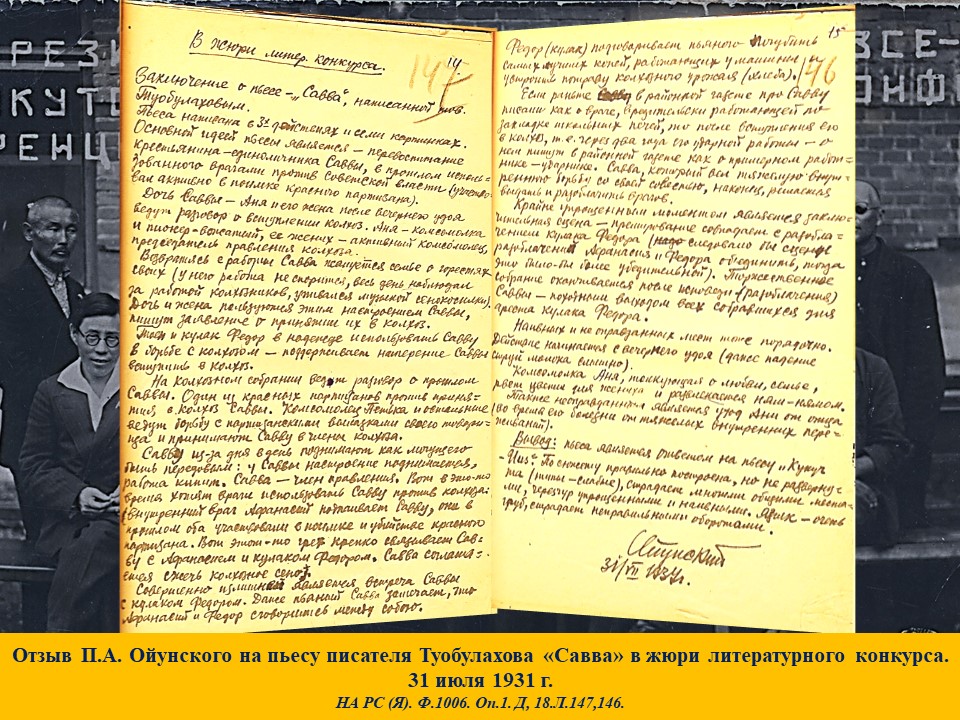 РЕЗИ
КУТ
РЕНЦ
ВСЕ-
ОНФ
В жюри литер. конкурса.
147
Заключение о пьесе – "Савва", написанной тов.
Туобулаховым.
Пьеса написана в 3х действиях и семи картинках.
Основной идеей пьесы является – перевоспитание
крестьянина-единоличника Саввы, в прошлом исполь-
зованного врагами против Советской власти (участво-
вал активно в поимке красного партизана).
Дочь Саввы – Аня и его жена после вечернего удоя
ведут разговор о вступлении колхоз. Аня – комсомолка
и пионер-вожатый, ее жених – активный комсомолец,
председатель правления колхоза.
Возвратясь с работы Савва жалуется семье о горестях
своих (у него работа не спорится, весь день наблюдал
за работой колхозников, упивался музыкой сенокосилки).
Дочь и жена пользуются этим настроением Саввы,
пишут заявление о принятии их в колхоз.
и кулак Федор в надежде использовать Савву
в борьбе с колхозом – поддерживает намерение Саввы
вступить в колхоз.
На колхозном собрании ведут разговор о прошлом
Саввы. Один из красных партизанов против приня-
тия в колхоз Саввы. Комсомолец Петька и остальные
ведут борьбу с партизанскими вылазками своего товари-
ща и принимают Савву в члены колхоза.
Савву из-за дня в день поднимают как могущего
быть передовым: у Саввы настроение поднимается,
работа кипит. Савва – член правления. Вот в это-то
время хотят враги использовать Савву против колхоза:
внутренний враг Афанасий подпаивает Савву, они в
прошлом оба участвовали в поимке и убийстве красного
партизана. Вот этот-то грех крепко связывает Сав-
ву с Афанасием и кулаком Федором. Савва соглаша-
ется сжечь колхозное сено.
Совершенно излишней является встреча Саввы
с кулаком Федором. Даже пьяный Савва замечает, что
Афанасий и Федор сговорились между собою.
15
146
Федор (кулак) подговаривает пьяного погубить
самых лучших коней, работающих у машины и
устроить потраву колхозного урожая (хлеба).
Если раньше в районной газете про Савву
писали как о враге, вредительски работающей по
закладке школьных печей, то после вступления его
в колхоз, т.е. через два года его ударной работы – о
нем пишут в районной газете как о примерном работ-
нике-ударнике. Савва, который вел тяжелую внут-
реннюю борьбу со своей совестью, наконец, решается
выдать и разоблачить врагов.
Крайне упрощенным моментом является заклю-
чительная сцена – премирование совпадает с разобла-
чением кулака Федора (следовало бы сцены
разоблачений Афанасия и Федора объединить, тогда
это было-бы более убедительной). Торжественное
собрание оканчивается после исповеди (разоблачения)
Саввы – походным выходом всех собравшихся для
ареста кулака Федора.
Наивных и не оправданных мест тоже порядочно.
Действие начинается с вечернего удоя (даже падение
струй молока слышно).
Комсомолка Аня, толкующая о любви, семье,
рвет цветы для жениха и развлекается ням-нямом.
Также неоправданным является уход Ани от отца
(во время его болезни от тяжелых внутренних пере-
живаний).
Вывод: пьеса является ответом на пьесу "Кукур
Уus". По сюжету правильно построена, но не разверну-
та (типы – слабые), страдает многими общими места-
ми, чересчур упрощенными и наивными. Язык – очень
груб, страдает неправильными оборотами.
Ойунский
31/VII 1931г.
Отзыв П.А. Ойунского на пьесу писателя Туобулахова «Савва» в жюри литературного конкурса.
31 июля 1931 г.
НА РС (Я). Ф.1006. Оп.1. Д, 18.Л.147,146.